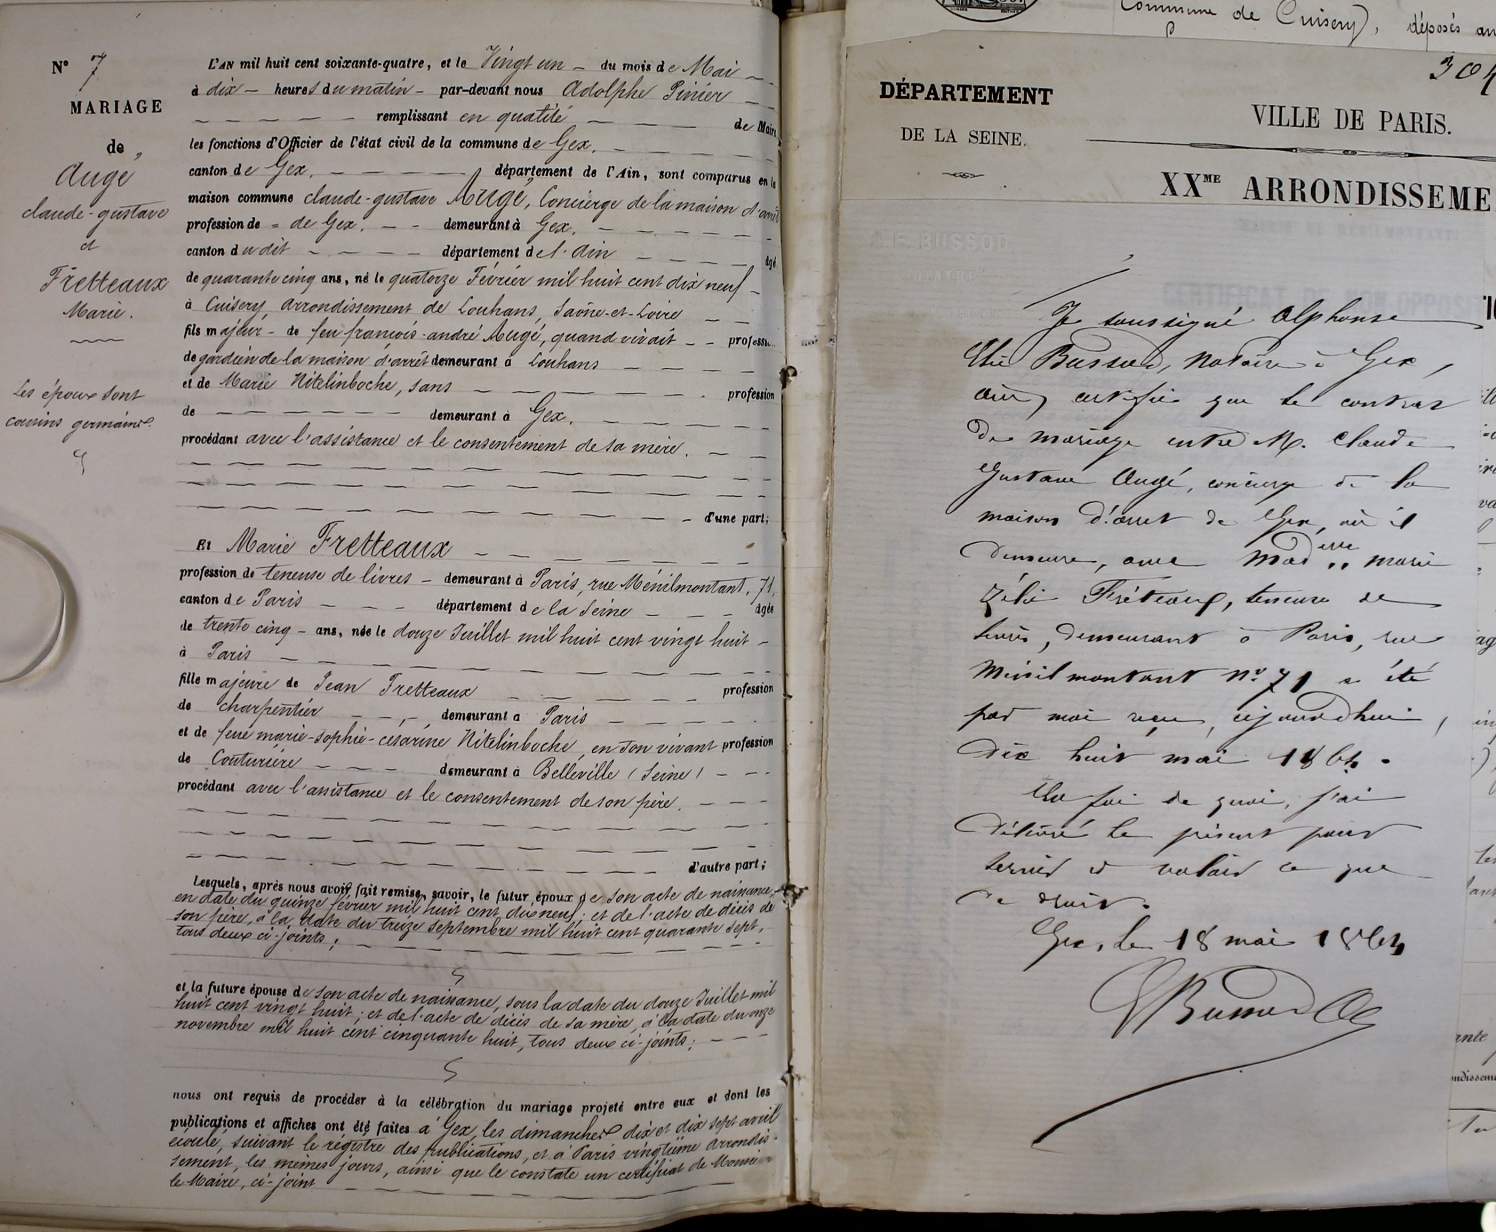 N° 7
MARIAGE
de
Augé
claude-gustave
et
Fretteaux
Marie.
Les époux sont
cousins germains.
L'AN mil huit cent soixante-quatre, et le Vingt un du mois de Mai
à dix heures du matin par-devant nous Adolphe Pinier
remplissant en qualité de Maire
les fonctions d'Officier de l'état civil de la commune de Gex.
canton de Gex. département de l'Ain, sont comparus en la
maison commune claude-gustave Augé, Concierge de la maison d'arrêt
profession de de Gex. demeurant à Gex.
canton dudit département de l'Ain âgé
de quarante cinq ans, né le quatorze Février mil huit cent dix neuf
à Cuisery, arrondissement de Louhans, Saône-et-Loire
fils majeur de feu françois-andré Augé, quand vivait profession
de gardien de la maison d'arrêt demeurant à Louhans
et de Marie Nitelinboche, sans profession
de demeurant à Gex.
procédant avec l'assistance et le consentement de sa mère.
d'une part;
Et Marie Fretteaux
profession de teneuse de livres demeurant à Paris, rue Ménilmontant, 71,
canton de Paris département de la Seine âgée
de trente cinq ans, née le douze Juillet mil huit cent vingt huit
à Paris
fille majeure de Jean Fretteaux profession
de charpentier demeurant à Paris
et de feue marie-sophie-césarine Nitelinboche, en son vivant profession
de Couturière demeurant à Belleville (Seine)
procédant avec l'assistance et le consentement de son père.
d'autre part;
Lesquels, après nous avoir fait remise, savoir, le futur époux de son acte de naissance,
en date du quinze février mil huit cent dix neuf; et de l'acte de décès de
son père, à la date du treize septembre mil huit cent quarante sept,
tous deux ci-joints;
et la future épouse de son acte de naissance, sous la date du douze Juillet mil
huit cent vingt huit; et de l'acte de décès de sa mère, à la date du onze
novembre mil huit cent cinquante huit, tous deux ci-joints;
nous ont requis de procéder à la célébration du mariage projeté entre eux et dont les
publications et affiches ont été faites à Gex, les dimanches dix et dix sept avril
écoulé, suivant le régistre des publications, et à Paris vingtième arrondis-
sement, les mêmes jours, ainsi que le constate un certificat de Monsieur
le Maire, ci-joint
commune de Cuisery), déposés au
304
DÉPARTEMENT
DE LA SEINE.
VILLE DE PARIS.
XXME ARRONDISSEME
Je soussigné Alphonse
Elie Bussod, Notaire à Gex,
ain, certifie que le contrat
de mariage entre M. Claude
Gustave Augé, concierge de la
maison d'arret de Gex, où il
demeure, avec Mad elle marie
Zélie Fréteaux, teneuse de
livres, demeurant à Paris, rue
Ménilmontant n° 71 a été
par moi reçu, cejourd'hui,
dix huit mai 1864.
En foi de quoi, j'ai
délivré le présent pour
servir et valoir ce que
de droit.
Gex, le 18 mai 1864